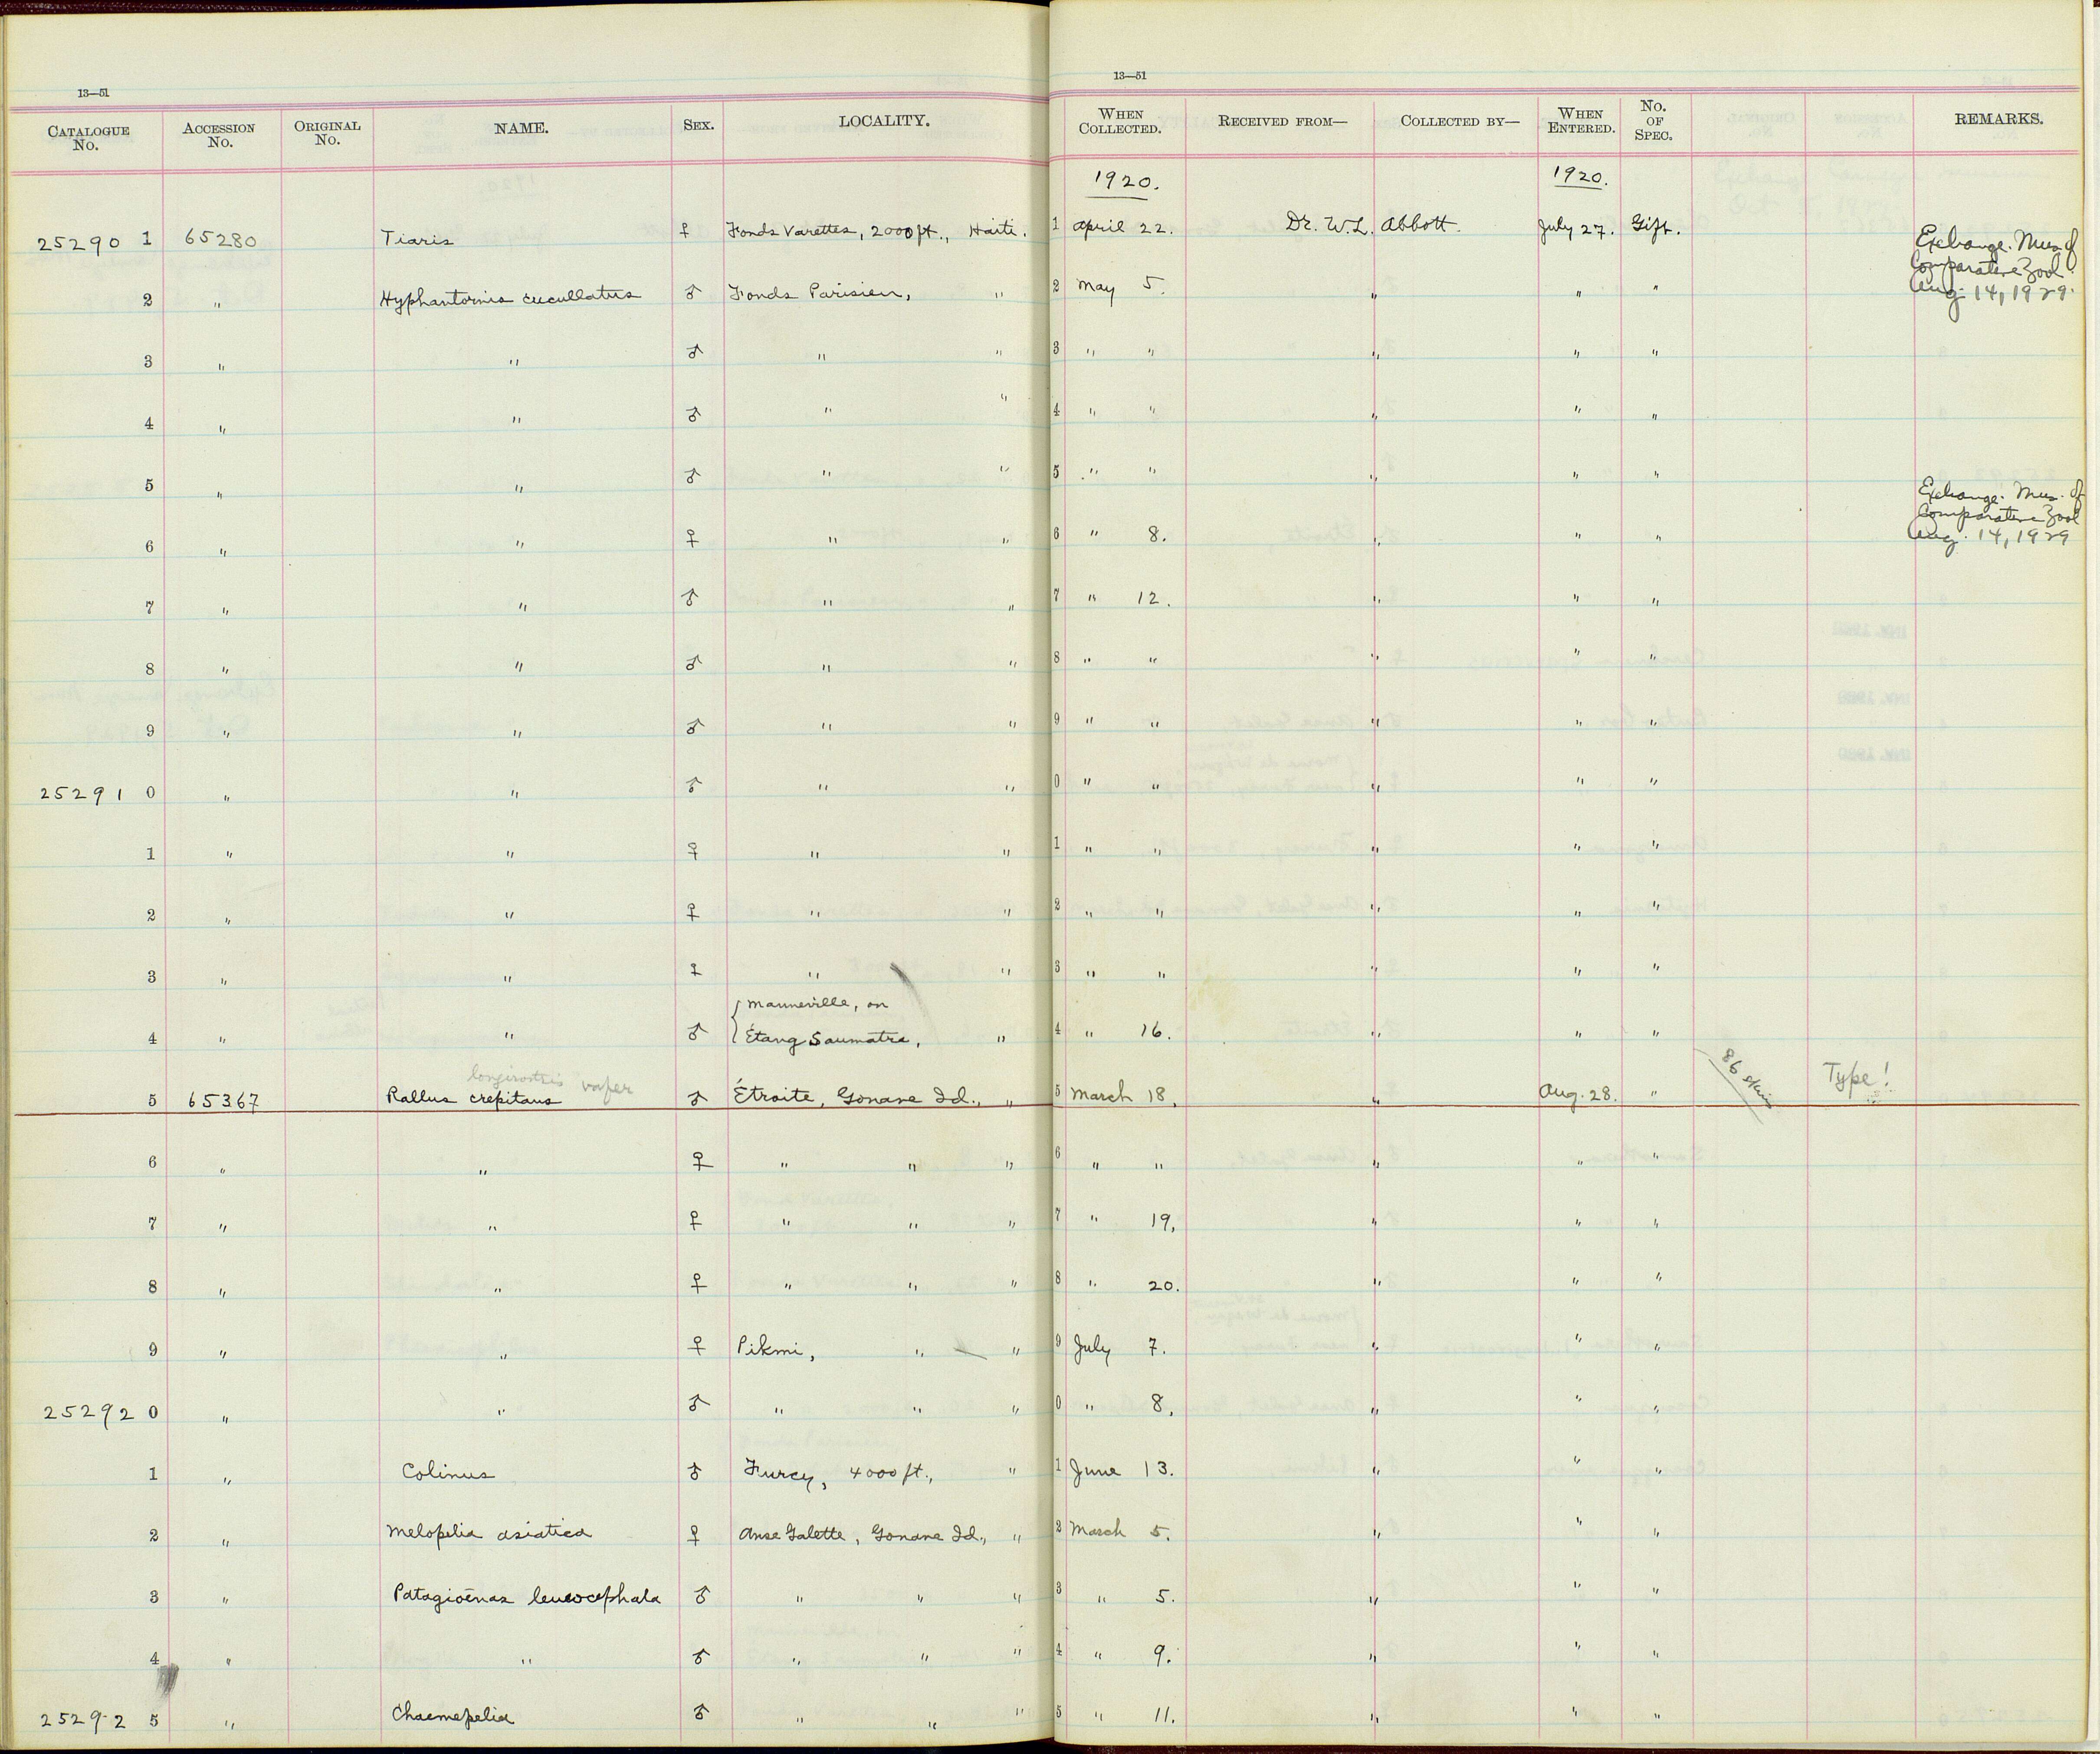 13—51
13—51
CATALOGUE No. ACCESSION No. ORIGINAL No. NAME. SEX. LOCALITY. WHEN COLLECTED. RECEIVED FROM— COLLECTED BY— WHEN ENTERED. No. OF SPEC. REMARKS.
1920. 1920.
25290 1 65280 Tiaris ♀ Fonds Varettes, 2000 ft., Haiti. 1 April 22. Dr. W.L. Abbott. July 27. Gift.
Exchange. Mus of
Comparative Zool.
Aug. 14, 1929.
2 " Hyphantornis cucullatus ♂ Fonds Parisien, " 2 May 5. " " "
3 " " ♂ " " 3 " " " " "
4 " " ♂ " " 4 " " " " "
5 " " ♂ " " 5 " " " " "
Exchange. Mus. of
Comparative Zool
Aug. 14, 1929
6 " " ♀ " " 6 " 8. " " "
7 " " ♂ " " 7 " 12. " " "
8 " " ♂ " " 8 " " " " "
9 " " ♂ " " 9 " " " " "
25291 0 " " ♂ " " 0 " " " " "
1 " " ♀ " " 1 " " " " "
2 " " ♀ " " 2 " " " " "
3 " " ♀ " " 3 " " " " "
{ Manneville, on
4 " " ♂ Étang Saumatre, " 4 " 16. " " "
longirostris vafer
5 65367 Rallus crepitans ♂ Étroite, Gonave Id., " 5 March 18, " Aug. 28. " 86 skins Type!
6 " " ♀ " " " 6 " " " " "
7 " " ♀ " " " 7 " 19, " " "
8 " " ♀ " " " 8 " 20. " " "
9 " " ♀ Pikmi, " " 9 July 7. " " "
25292 0 " " ♂ " " " 0 " 8, " " "
1 " Colinus ♂ Furcy, 4000 ft., " 1 June 13. " " "
2 " Melopelia asiatica ♀ Anse Galette, Gonave Id., " 2 March 5. " " "
3 " Patagioenas leucocephala ♂ " " " 3 " 5. " " "
4 " " ♂ " " " 4 " 9. " " "
25292 5 " Chaemepelia ♂ " " " 5 " 11. " " "